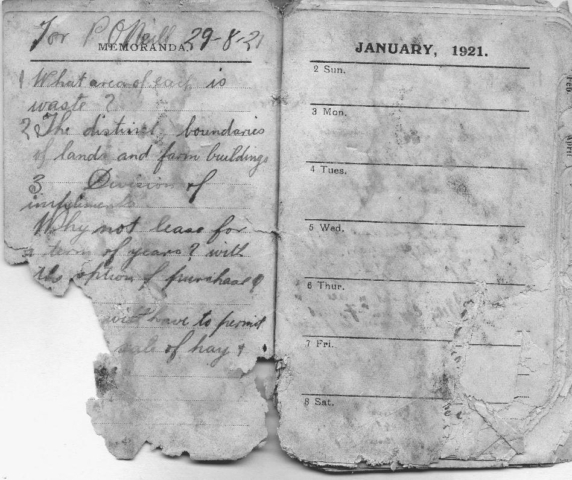 For P. O'Neill 29-8-21
MEMORANDA
1 What area of each is
waste ?
2 The distinct boundaries
of lands and farm buildings
3 Division of
implements
Why not lease for
a term of years ? with
the option of purchase ?
will have to permit
sale of hay &
JANUARY, 1921.
2 Sun.
3 Mon.
4 Tues.
5 Wed.
6 Thur.
7 Fri.
8 Sat.
Feb
April